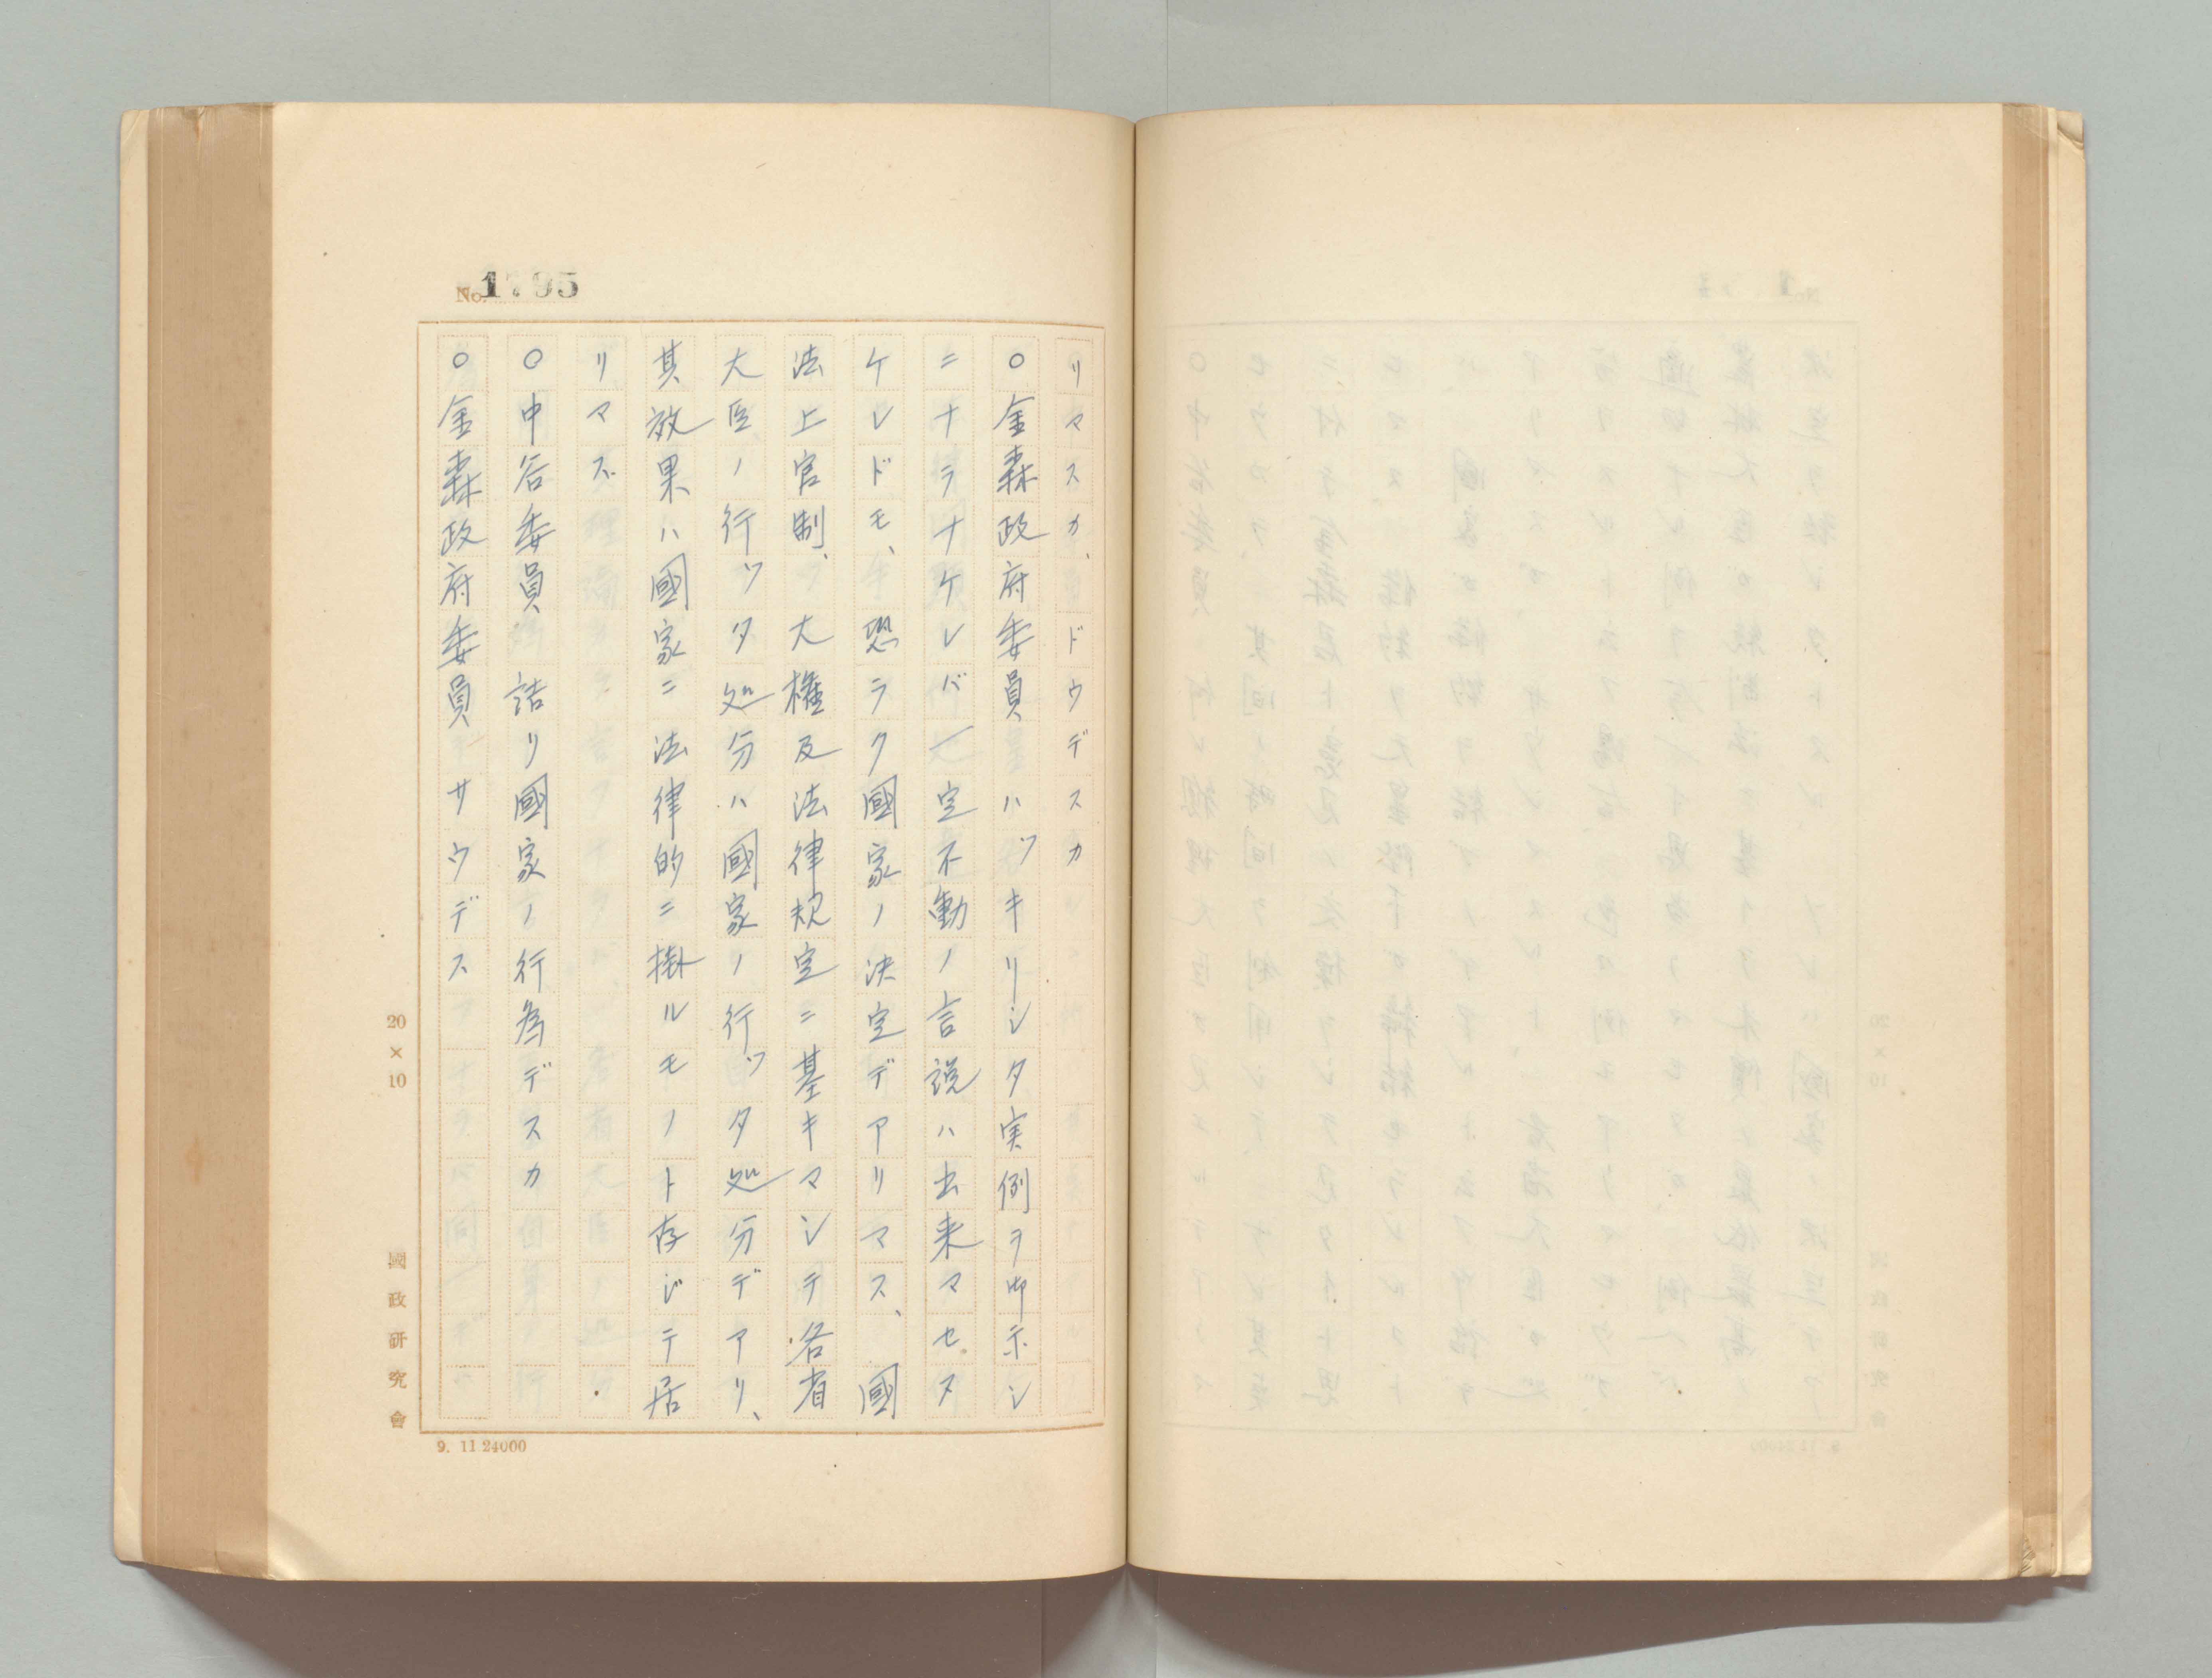 No. 1795
リマスカ、ドウデスカ
○金森政府委員 ハツキリシタ実例ヲ御示シ
ニナラナケレバ一定不動ノ言説ハ出来マセヌ
ケレドモ、恐ラク國家ノ決定デアリマス、國
法上官制、大権及法律規定ニ基キマシテ各省
大臣ノ行ツタ処分ハ國家ノ行ツタ処分デアリ、
其効果ハ國家ニ法律的ニ掛ルモノト存ジテ居
リマス
○中谷委員 詰リ國家ノ行為デスカ
○金森政府委員 サウデス
20×10
國政研究會
9. 11.24000